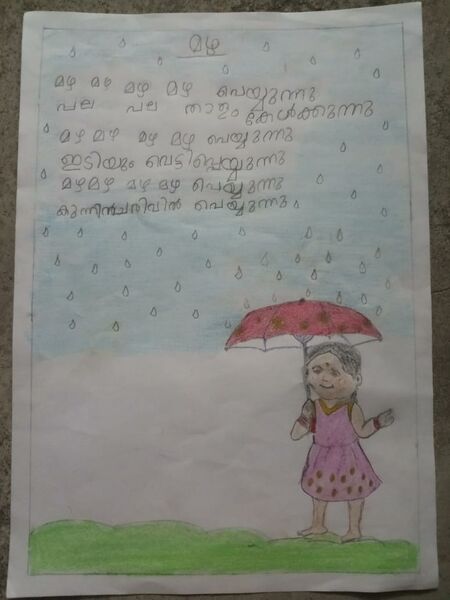 മഴ
മഴ മഴ മഴ മഴ പെയ്യുന്നു
പല പല താളം കേൾക്കുന്നു
മഴ മഴ മഴ മഴ പെയ്യുന്നു
ഇടിയും വെട്ടിപ്പെയ്യുന്നു
മഴമഴ മഴ മഴ പെയ്യുന്നു
കുന്നിൻചരിവിൽ പെയ്യുന്നു